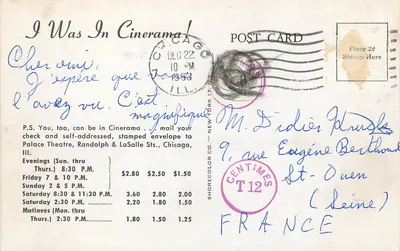 I Was In Cinerama!
POST CARD
Place 2¢
Stamp Here
CHICAGO
DEC 22
10 PM
1953
ILL.
Cher ami,
J'espère que vous
l'avez vu. C'est
magnifique
P.S. You, too, can be in Cinerama mail your
check and self-addressed, stamped envelope to
Palace Theatre, Randolph & LaSalle Sts., Chicago,
Ill.
Evenings (Sun. thru
Thurs.) 8:30 P.M. $2.80 $2.50 $1.50
Friday 7 & 10 P.M.
Sunday 2 & 5 P.M.
Saturday 8:30 & 11:30 P.M. 3.60 2.80 2.00
Saturday 2:30 P.M. 2.20 1.80 1.50
Matinees (Mon. thru
Thurs.) 2:30 P.M. 1.80 1.50 1.25
SHORECOLOR CO. NEW YORK 17
M. Didier
9, rue Eugène Berthoud
St-Ouen
(Seine)
FRANCE
CENTIMES
T 12